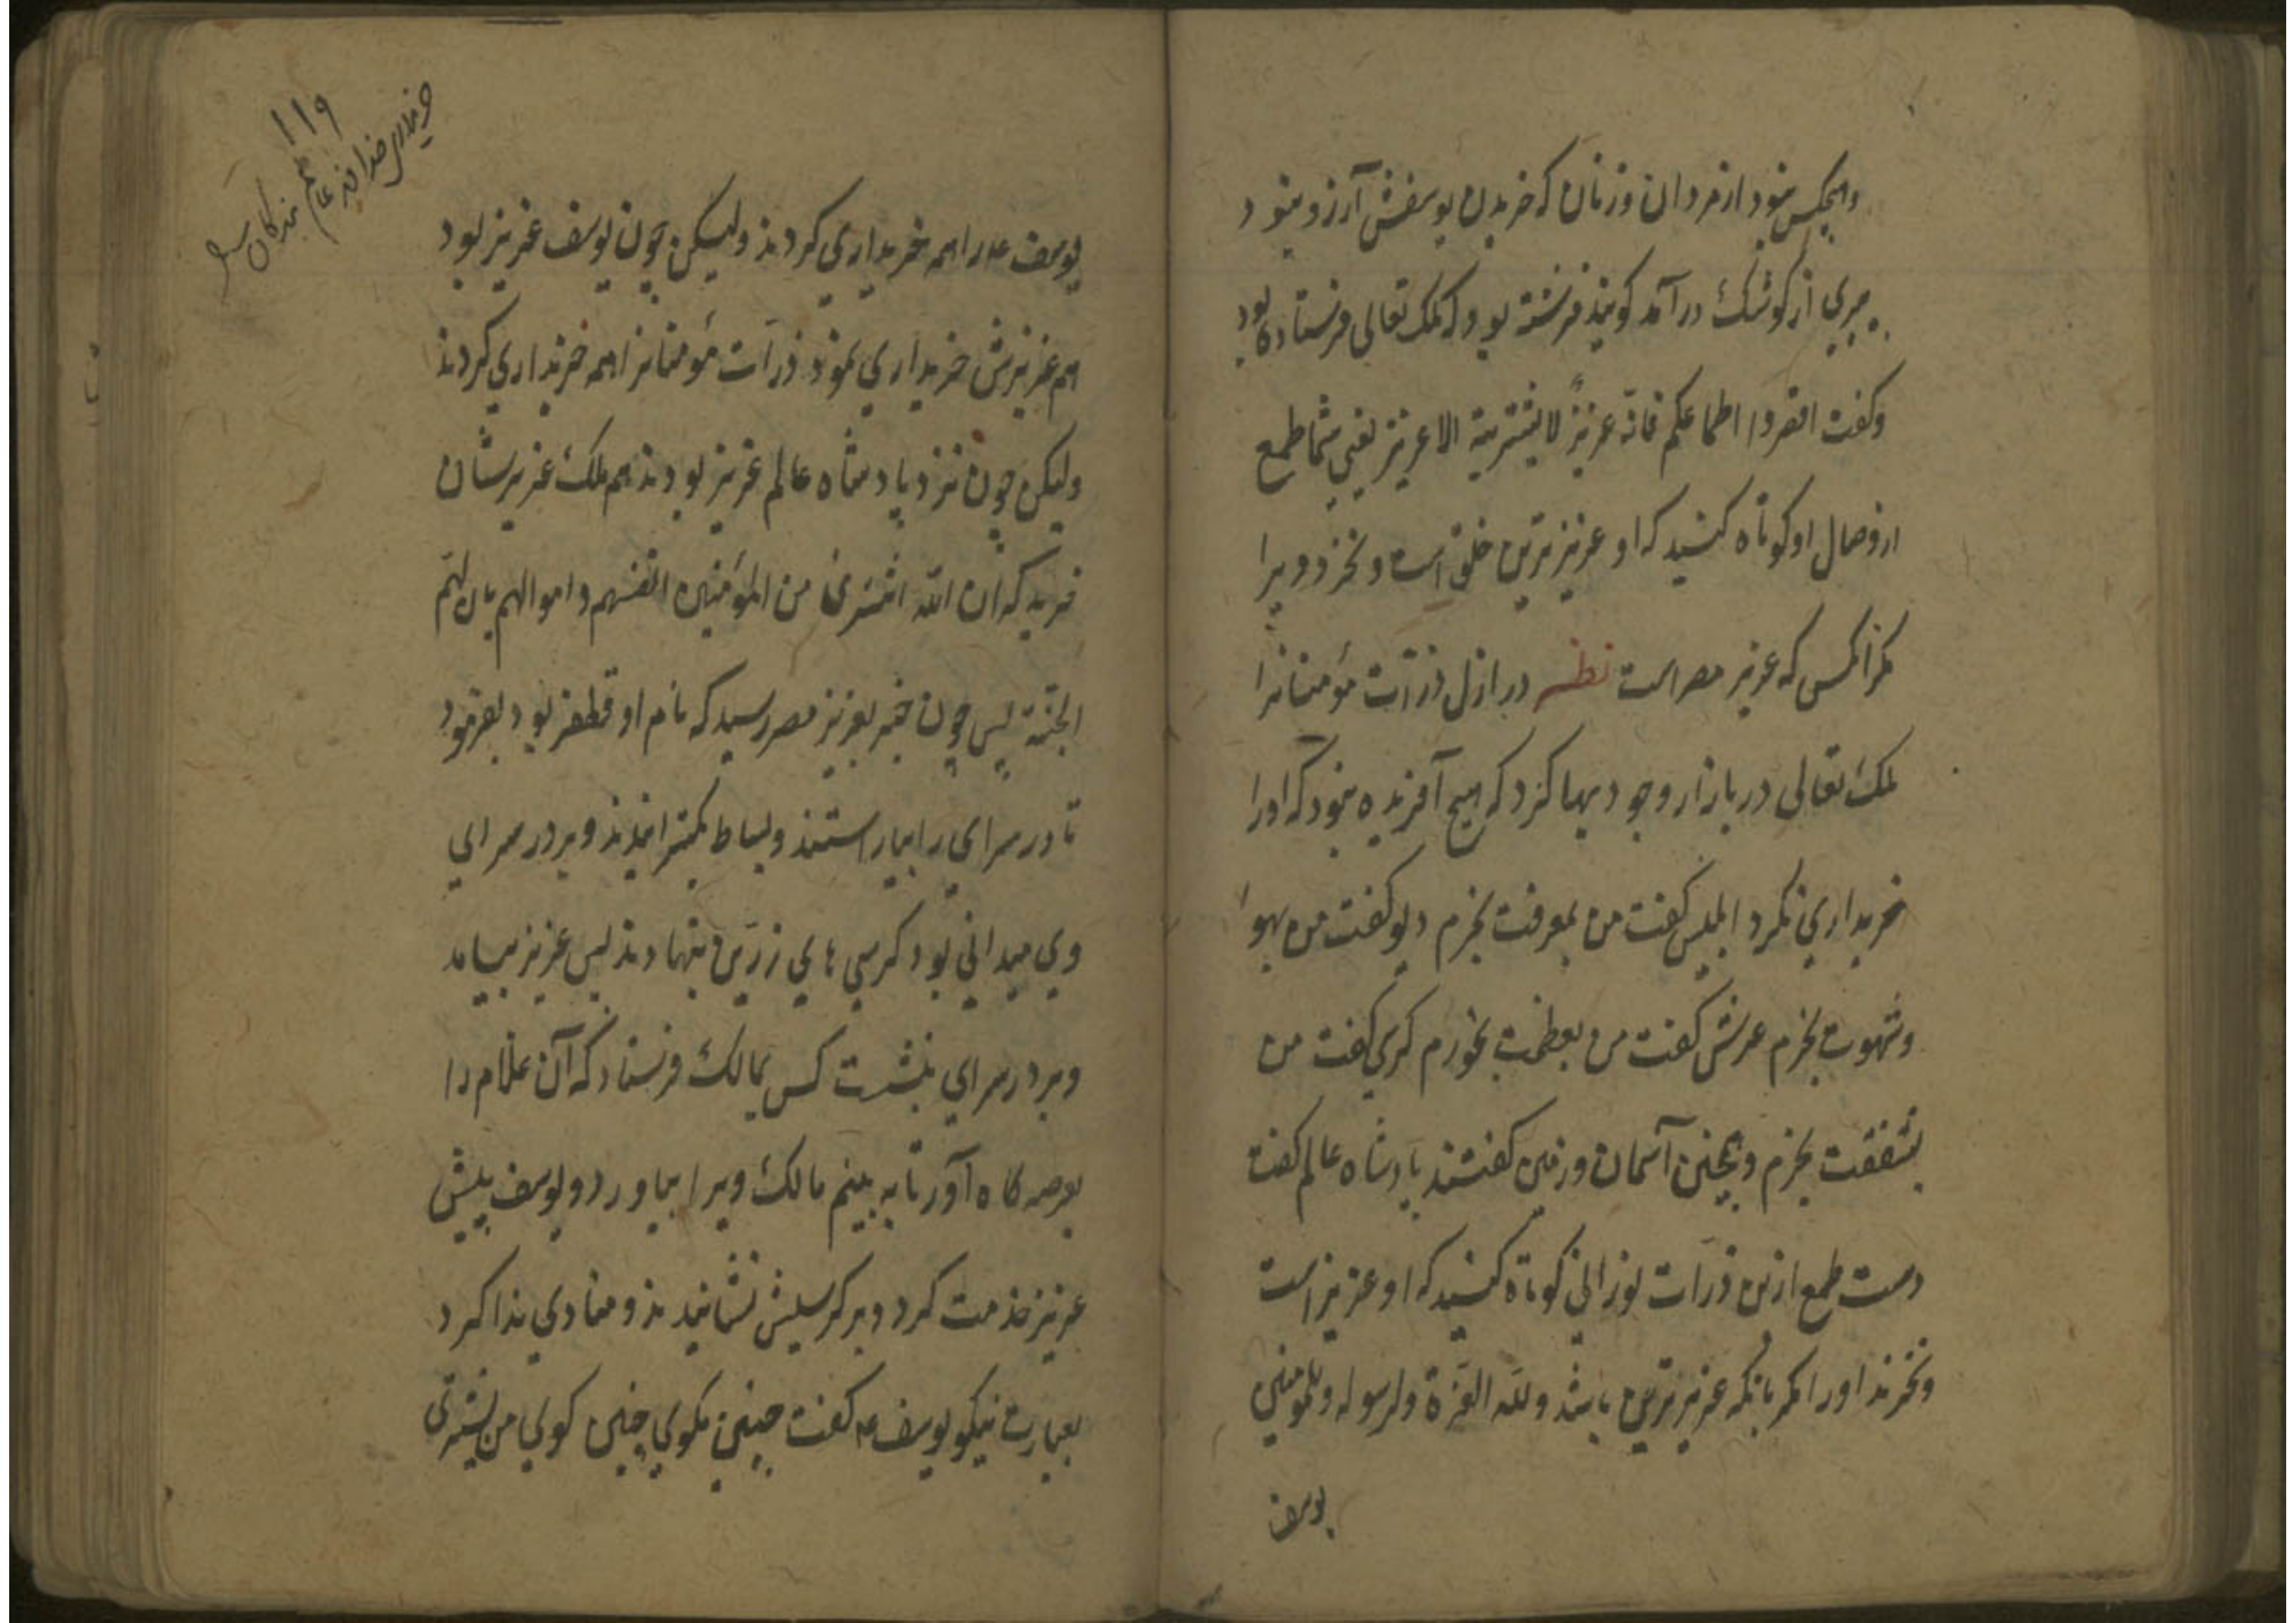 وهیچکس نبود از مردان و زنان که خریدن یوسفش آرزو نبود
پیری از کوشک درآمد کویند فرشته بود که ملک تعالی فرستاده بود
وکفت اقصروا اطماعکم فانه عزیزٌ لا یشتریه الا عزیز یعنی شما طمع
از وصال او کوتاه کنید که او عزیزترین خلق است و نخرد ویرا
مکر آنکس که عزیز مصر است نظیر در ازل ذرّات مؤمنانرا
ملک تعالی در بازار وجود بها کرد که هیچ آفریده نبود که اورا
خریداری نکرد ابلیس کفت من بمعرفت بخرم دیو کفت من بهوا
وشهوت بخرم عرش کفت من بعظمت بخرم کرسی کفت من
بشفقت بخرم وهمچنین آسمان وزمین کفتند پادشاه عالم کفت
دست طمع ازین ذرّات نورانی کوتاه کنید که او عزیز است
ونخرند اورا مکر بانکه عزیزترین باشد ولله العزّة ولرسوله وللمؤمنین
یوسف
۱۱۹
خریداری خداوند عالم بندکان
یوسف ع را همه خریداری کردند ولیکن چون یوسف عزیز بود
هم عزیزش خریداری نمود ذرّات مؤمنانرا همه خریداری کردند
ولیکن چون نزد پادشاه عالم عزیز بودند هم ملک عزیزشان
خرید که ان الله اشتری من المؤمنین انفسهم واموالهم بان لهم
الجنّة پس چون خبر بعزیز مصر رسید که نام او قطفیر بود بفرمود
تا در سرای را بیاراستند وبساط بکسترانیدند وبر در سرای
وی میدانی بود کرسی های زرّین بنهادند پس عزیز بیامد
وبر در سرای بنشست کس بمالک فرستاد که آن غلام را
بعرصه کاه آور تا به بینم مالک ویرا بیاورد ویوسف پیش
عزیز خدمت کرد وبر کرسیش نشانیدند ومنادی ندا کرد
بعبارت نیکو یوسف ع کفت چنین مکوی چنین کوی من یشتری